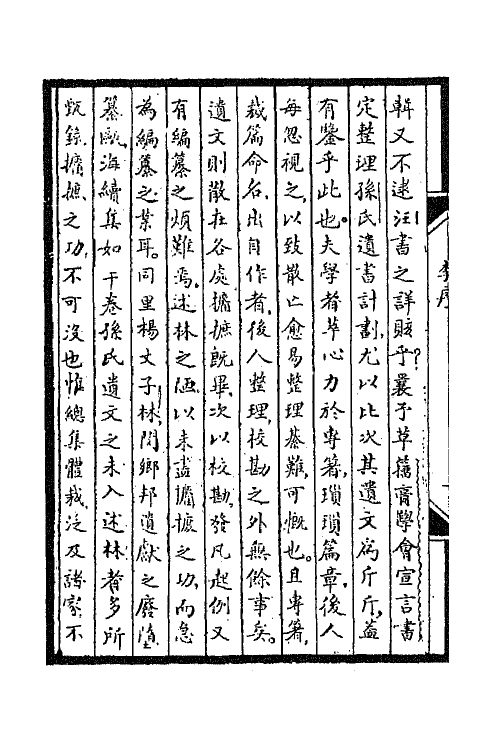 輯又不逮汪書之詳賅乎曩予草籀廎學會宣言書
定整理孫氏遺書計劃尤以比次其遺文爲斤斤蓋
有鑒乎此也夫學者萃心力於專箸瑣瑣篇章後人
每忽視之以致散亡愈易整理綦難可慨也且專箸
裁篇命名出自作者後人整理校勘之外無餘事矣
遺文則散在各處攟摭既畢次以校勘發凡起例又
有編纂之煩難焉述林之陋以未盡攟摭之功而急
為編纂之業耳同里楊文子林閔鄉邦遺獻之廢墮
纂甌海續集如干卷孫氏遺文之未入述林者多所
甄錄攟摭之功不可沒也惟總集體裁泛及諸家不
李序